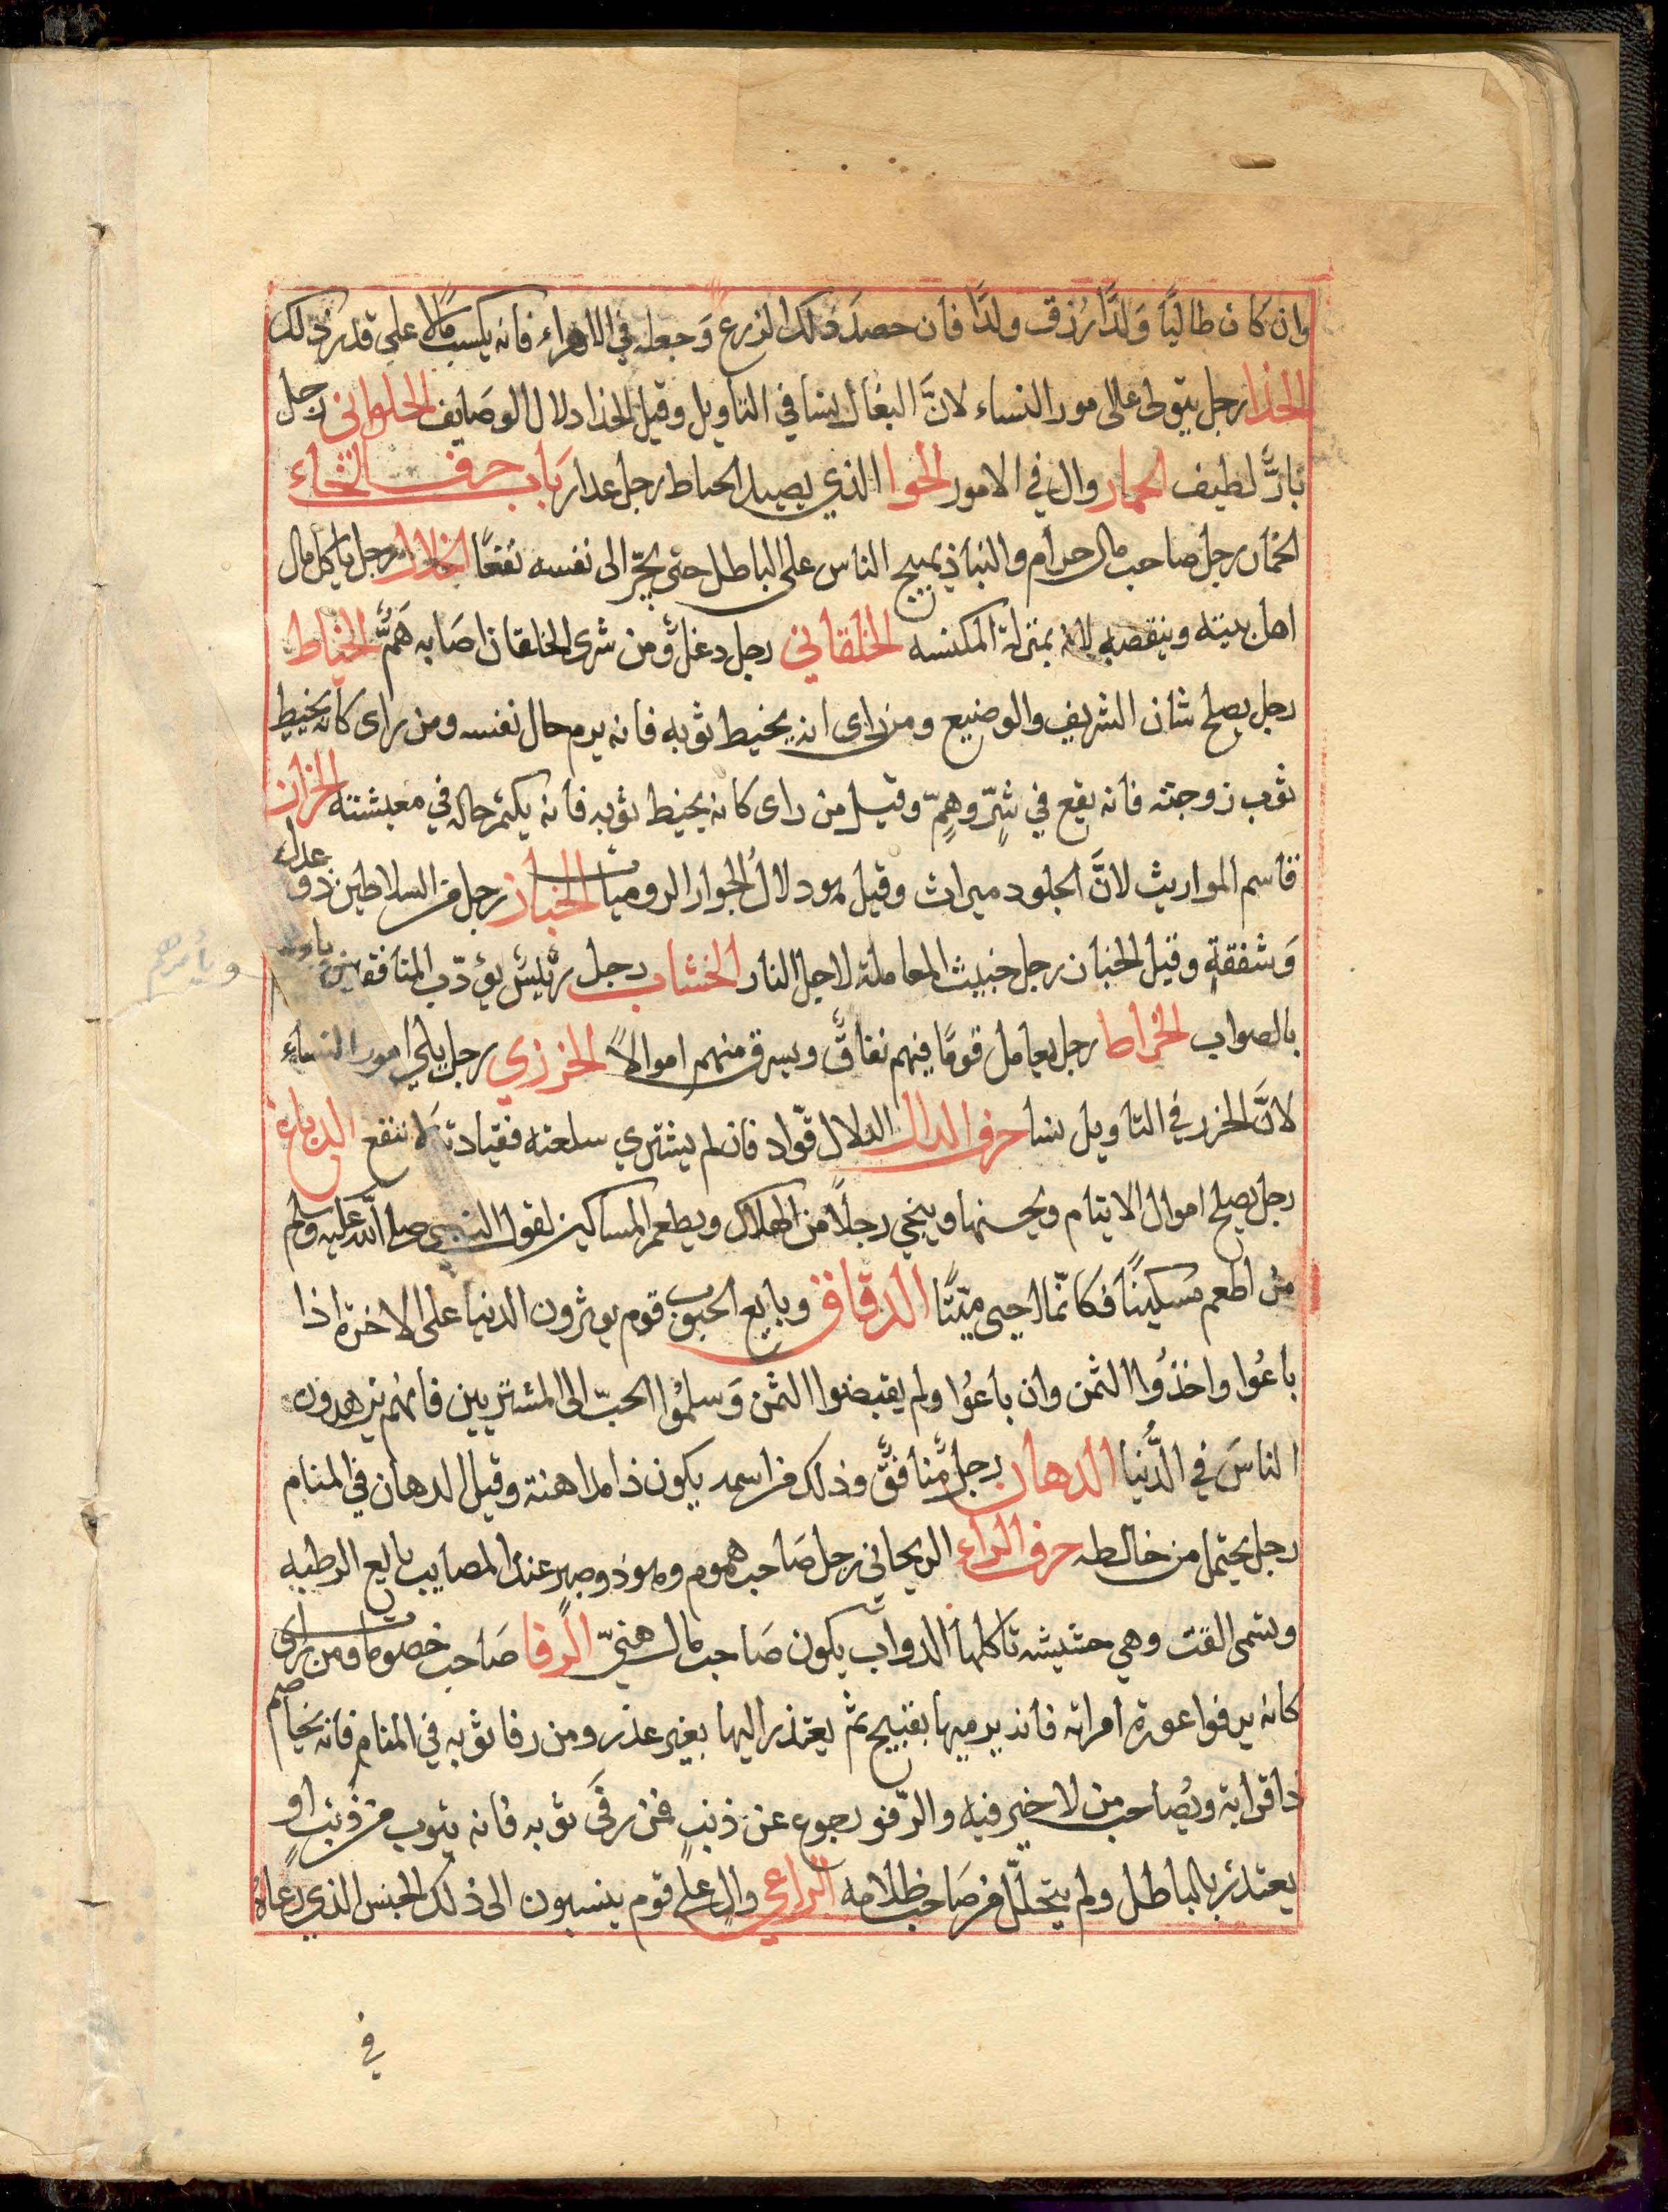 وان كان طالبًا وَلدًا رُزق ولدًا فان حصدَ ذلك الزرع وَجعله في الاهراء فانه يكسب مالًا على قدر ذلك
الحذا رجل يتولى على امور النساء لانَّ البغال نسا في التاويل وقيل الحذا دلال الوصَايف الحلواني رجل
بارٌّ لطيف الحمار وال في الامور الحوا الذي يصيد رجل عدار بَاب حرف الخاء
الخمار رجل صاحب مال حرام والنباذ يهيج الناس على الباطل حتى يجّر الى نفسه نفعًا الخلال رجل ياكل مال
اهل بيته وينقصه لانه بمنزلة المكنسه الخلقاني رجل دغل ومن شرى الخلقان اصَابه هَمٌّ الخياط
رجل يصلح شان الشريف والوضيع ومن راى انه يخيط ثوبه فانه يرم حال نفسه ومن راى كانه يخيط
ثوب زوجته فانه يقع في شرٍّ وهمٍّ وقيل من راى كانه يخيط ثوبه فانه يكتم حاله في معيشته الخراز
قاسم المواريث لانَّ الجلود ميراث وقيل هو دلالُ الجوار الروميات الخباز رجل من السلاطين ذو عدل
وَشفقةٍ وقيل الخباز رجل خبيث المعاملة لاجل النار الخشاب رجل رئيس يؤدّب المنافقين
ويأمرهم
بالصواب الخراط رجل يعامل قومًا فيهم نفاقٌ ويسرق منهم اموالًا الخرزي رجل يلي امور النساء
لانَّ الخرز في التاويل نسا حرف الدال الدلال قوّاد فان لم يشتري سلعته فقيادته لا تنفع الدباغ
رجل يصلح اموال الايتام ويحسنها وينجي رجلًا من الهلاك ويطعم المساكين لقول النبي صلى الله عليه وسلم
من اطعم مسكينًا فكانمّا احيى ميّتًا الدقاق وبايع الحبوب قوم يوثرون الدنيا على الاخرة اذا
باعُوا واخذُوا الثمن وان باعُوا ولم يقبضوا الثمن وَسلمُوا الحبّ الى المشتريين فانهم يزهدون
الناسَ في الدُّنيا الدهان رجل مُنافقٌ وذلك من اسمه يكون ذا مداهنة وقيل الدهان في المنام
رجل يحتمل من خالطه حرف الراء الريحاني رجل صَاحب هموم وهو ذو صبرٍ عند المصايب بايع الرطبه
وتسمى القت وهي حشيشه تاكلها الدواب يكون صَاحب مال هنيّ الرفا صَاحب خصومات ومن راى
كانه يرفوا عورة امراته فانه يرميها بقبيح ثم يعتذر اليها بغير عذر ومن رفا ثوبه في المنام فانه يخاصم
ذا قرابة ويُصَاحب من لا خير فيه والرّفو رجوع عن ذنبٍ فمن رفَى ثوبه فانه يتوب من ذنب او
يعتذر بالباطل ولم يتحلّل من صَاحب ظلامه الراعي والٍ على قوم ينسبون الى ذلك الجنس الذي رعاهُ
في